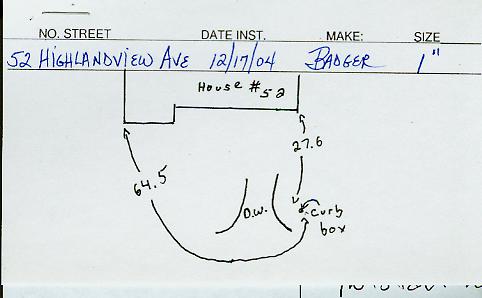 NO. STREET DATE INST. MAKE: SIZE
52 HIGHLANDVIEW AVE 12/17/04 BADGER 1"
HOUSE # 52
27.6
64.5
D.W.
curb
box